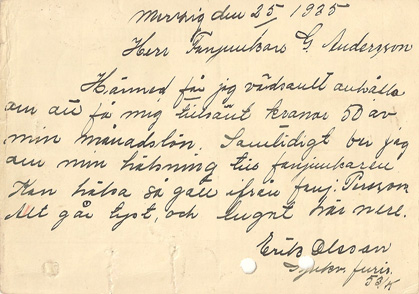 den 25/ 1925
Herr Fanjunkare G. Andersson
Härmed får jag vördsamt anhålla
om att få mig tillsänt kronor 50 av
min månadslön. Samtidigt ber jag
om min hälsning till fanjunkaren
Kan hälsa så gått ifrån fanj. Persson
Alt går tyst, och lugnt här nere.
Erik Olsson